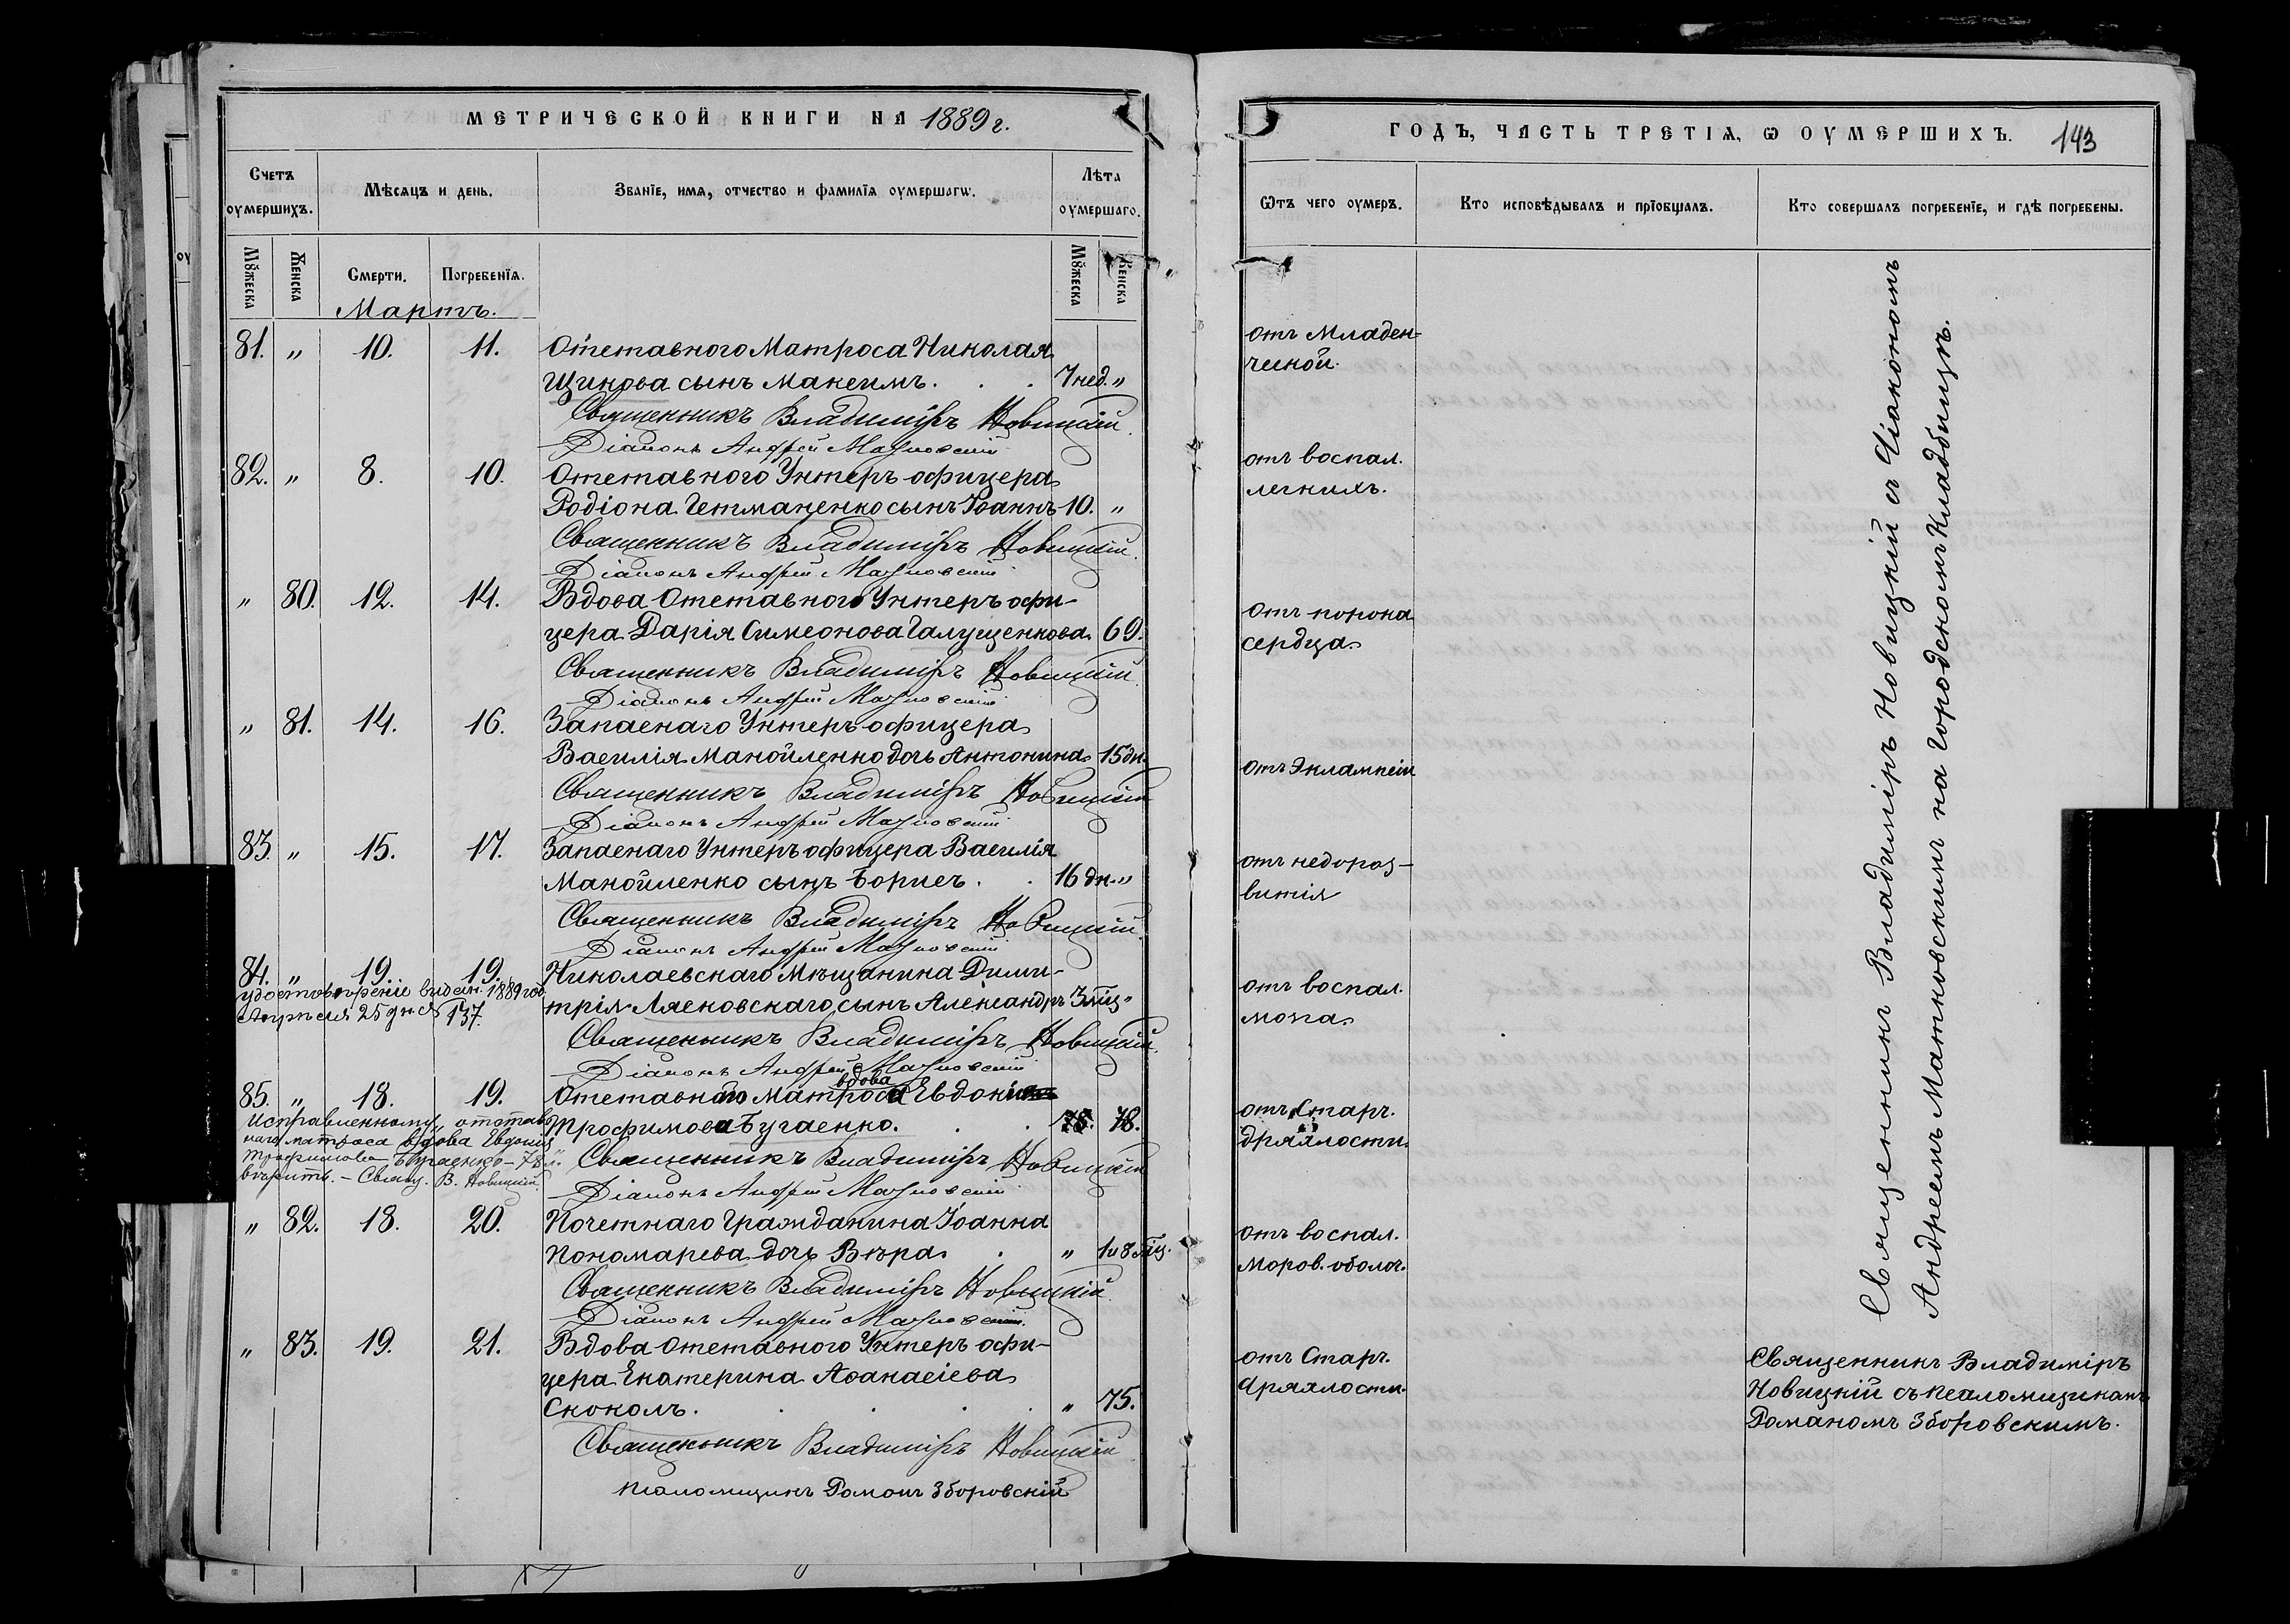 МЕТРИЧЕСКОЙ КНИГИ НА 1889 г.
Счетъ оумершихъ.
Мѣсяцъ и день.
Званїе, имя, отчество и фамилїя оумершагѡ.
Лѣта оумершаго.
Мꙋжеска
Женска
Смерти.
Погребенїя.
Мꙋжеска
Женска
Мартъ.
81. " 10. 11. Отставного Матроса Николая
Щикова сынъ Максимъ. . . 7 нед. "
Священникъ Владиміръ Новицкій
Діаконъ Андрей
82. " 8. 10. Отставного Унтеръ офицера
Родіона Гетманенко сынъ Іоаннъ 10. "
Священникъ Владиміръ Новицкій.
Діаконъ Андрей
" 80. 12. 14. Вдова Отставного Унтеръ офи-
цера Дарія Симеонова Галущенкова 69.
Священникъ Владиміръ Новицкій
Діаконъ Андрей
" 81. 14. 16. Запаснаго Унтеръ офицера
Василія Манойленко дочь Антонина 15 дн.
Священникъ Владиміръ Новицкій
Діаконъ Андрей
83. " 15. 17. Запаснаго Унтеръ офицера Василія
Манойленко сынъ Борисъ. . 16 дн. "
Священникъ Владиміръ Новицкій
Діаконъ Андрей
84. " 19. 19. Николаевскаго Мѣщанина Дими-
трія Лясковскаго сынъ Александръ 3 мѣц. "
удостовѣреніе выдан. 1889 год
Апрѣля 25 дня 137.
Священникъ Владиміръ Новицкій.
Діаконъ Андрей
85. " 18. 19. Отставного Матроса вдова Евдокія
Трофимова Бугаенко. . . 78. 78.
Исправленному "отстав-
наго матроса вдова Евдокія
Трофимова Бугаенко - 78 л."
вѣрить. - Свящ. В. Новицкій.
Священникъ Владиміръ Новицкій
Діаконъ Андрей
" 82. 18. 20. Почетнаго Гражданина Іоанна
Пономарева дочь Вѣра. . " 1 и 8 мѣц.
Священникъ Владиміръ Новицкій
Діаконъ Андрей
" 83. 19. 21. Вдова Отставного Унтеръ офи-
цера Екатерина Аѳанасіева
Скоколъ. . . . . " 75.
Священникъ Владиміръ Новицкій
Псаломщикъ Романъ Зборовскій
ГОДЪ, ЧАСТЬ ТРЕТІЯ, Ѡ ОУМЕРШИХЪ. 143
Ѿтъ чего оумеръ.
Кто исповѣдывалъ и прїобщалъ.
Кто совершалъ погребенїе, и гдѣ погребены.
отъ Младен-
ческой.
отъ воспал.
легкихъ.
отъ порока
сердца
отъ Эклампсіи
отъ недораз-
витія
отъ воспал.
мозга.
отъ Старч.
дряхлости.
отъ воспал.
мозгов. оболоч.
отъ Старч.
дряхлости.
Священникъ Владиміръ Новицкій съ Діакономъ
Андреемъ Матковскимъ на Городскомъ Кладбищѣ.
Священникъ Владиміръ
Новицкій съ псаломщикомъ
Романомъ Зборовскимъ.